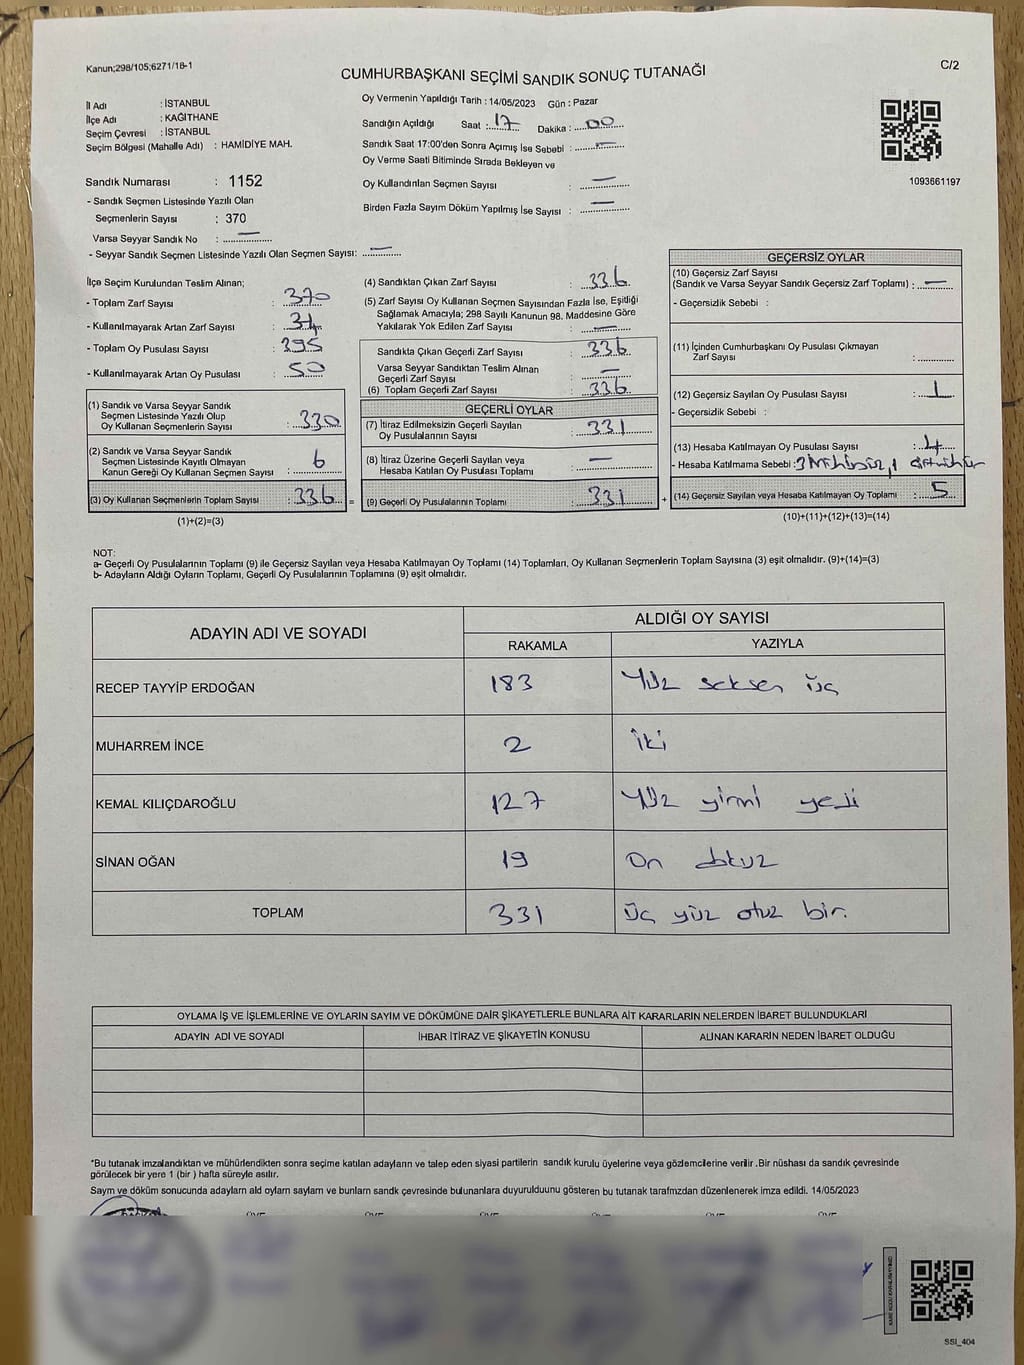 Kanun;298/105;6271/18-1
CUMHURBAŞKANI SEÇİMİ SANDIK SONUÇ TUTANAĞI
C/2
İl Adı : İSTANBUL
İlçe Adı : KAĞITHANE
Seçim Çevresi : İSTANBUL
Seçim Bölgesi (Mahalle Adı) : HAMİDİYE MAH.
Sandık Numarası : 1152
- Sandık Seçmen Listesinde Yazılı Olan
Seçmenlerin Sayısı : 370
Varsa Seyyar Sandık No : —
- Seyyar Sandık Seçmen Listesinde Yazılı Olan Seçmen Sayısı: —
Oy Vermenin Yapıldığı Tarih : 14/05/2023 Gün : Pazar
Sandığın Açıldığı Saat : 17 Dakika : 00
Sandık Saat 17:00'den Sonra Açımış İse Sebebi : —
Oy Verme Saati Bitiminde Sırada Bekleyen ve
Oy Kullandırılan Seçmen Sayısı : —
Birden Fazla Sayım Döküm Yapılmış İse Sayısı : —
1093661197
İlçe Seçim Kurulundan Teslim Alınan;
- Toplam Zarf Sayısı : 370
- Kullanılmayarak Artan Zarf Sayısı : 34
- Toplam Oy Pusulası Sayısı : 395
- Kullanılmayarak Artan Oy Pusulası : 50
(1) Sandık ve Varsa Seyyar Sandık
Seçmen Listesinde Yazılı Olup
Oy Kullanan Seçmenlerin Sayısı : 330
(2) Sandık ve Varsa Seyyar Sandık
Seçmen Listesinde Kayıtlı Olmayan
Kanun Gereği Oy Kullanan Seçmen Sayısı : 6
(3) Oy Kullanan Seçmenlerin Toplam Sayısı : 336 =
(1)+(2)=(3)
(4) Sandıktan Çıkan Zarf Sayısı : 336
(5) Zarf Sayısı Oy Kullanan Seçmen Sayısından Fazla İse, Eşitliği
Sağlamak Amacıyla; 298 Sayılı Kanunun 98. Maddesine Göre
Yakılarak Yok Edilen Zarf Sayısı : —
Sandıkta Çıkan Geçerli Zarf Sayısı : 336
Varsa Seyyar Sandıktan Teslim Alınan
Geçerli Zarf Sayısı : —
(6) Toplam Geçerli Zarf Sayısı : 336
GEÇERLİ OYLAR
(7) İtiraz Edilmeksizin Geçerli Sayılan
Oy Pusulalarının Sayısı : 331
(8) İtiraz Üzerine Geçerli Sayılan veya
Hesaba Katılan Oy Pusulası Toplamı : —
(9) Geçerli Oy Pusulalarının Toplamı : 331 +
GEÇERSİZ OYLAR
(10) Geçersiz Zarf Sayısı
(Sandık ve Varsa Seyyar Sandık Geçersiz Zarf Toplamı) : —
- Geçersizlik Sebebi :
(11) İçinden Cumhurbaşkanı Oy Pusulası Çıkmayan
Zarf Sayısı :
(12) Geçersiz Sayılan Oy Pusulası Sayısı : 1
- Geçersizlik Sebebi :
(13) Hesaba Katılmayan Oy Pusulası Sayısı : 4
- Hesaba Katılmama Sebebi : 3 Mühürsüz, 1
(14) Geçersiz Sayılan veya Hesaba Katılmayan Oy Toplamı : 5
(10)+(11)+(12)+(13)=(14)
NOT:
a- Geçerli Oy Pusulalarının Toplamı (9) ile Geçersiz Sayılan veya Hesaba Katılmayan Oy Toplamı (14) Toplamları, Oy Kullanan Seçmenlerin Toplam Sayısına (3) eşit olmalıdır. (9)+(14)=(3)
b- Adayların Aldığı Oyların Toplamı, Geçerli Oy Pusulalarının Toplamına (9) eşit olmalıdır.
ADAYIN ADI VE SOYADI
ALDIĞI OY SAYISI
RAKAMLA YAZIYLA
RECEP TAYYİP ERDOĞAN 183 Yüz seksen üç
MUHARREM İNCE 2 iki
KEMAL KILIÇDAROĞLU 127 Yüz yirmi yedi
SİNAN OĞAN 19 On dokuz
TOPLAM 331 üç yüz otuz bir.
OYLAMA İŞ VE İŞLEMLERİNE VE OYLARIN SAYIM VE DÖKÜMÜNE DAİR ŞİKAYETLERLE BUNLARA AİT KARARLARIN NELERDEN İBARET BULUNDUKLARI
ADAYIN ADI VE SOYADI İHBAR İTİRAZ VE ŞİKAYETİN KONUSU ALINAN KARARIN NEDEN İBARET OLDUĞU
*Bu tutanak imzalandıktan ve mühürlendikten sonra seçime katılan adayların ve talep eden siyasi partilerin sandık kurulu üyelerine veya gözlemcilerine verilir .Bir nüshası da sandık çevresinde
görülecek bir yere 1 (bir ) hafta süreyle asılır.
Sayım ve döküm sonucunda adayların ald oyların sayların ve bunların sandk çevresinde bulunanlara duyurulduunu gösteren bu tutanak tarafmzdan düzenlenerek imza edildi. 14/05/2023
SSI_404